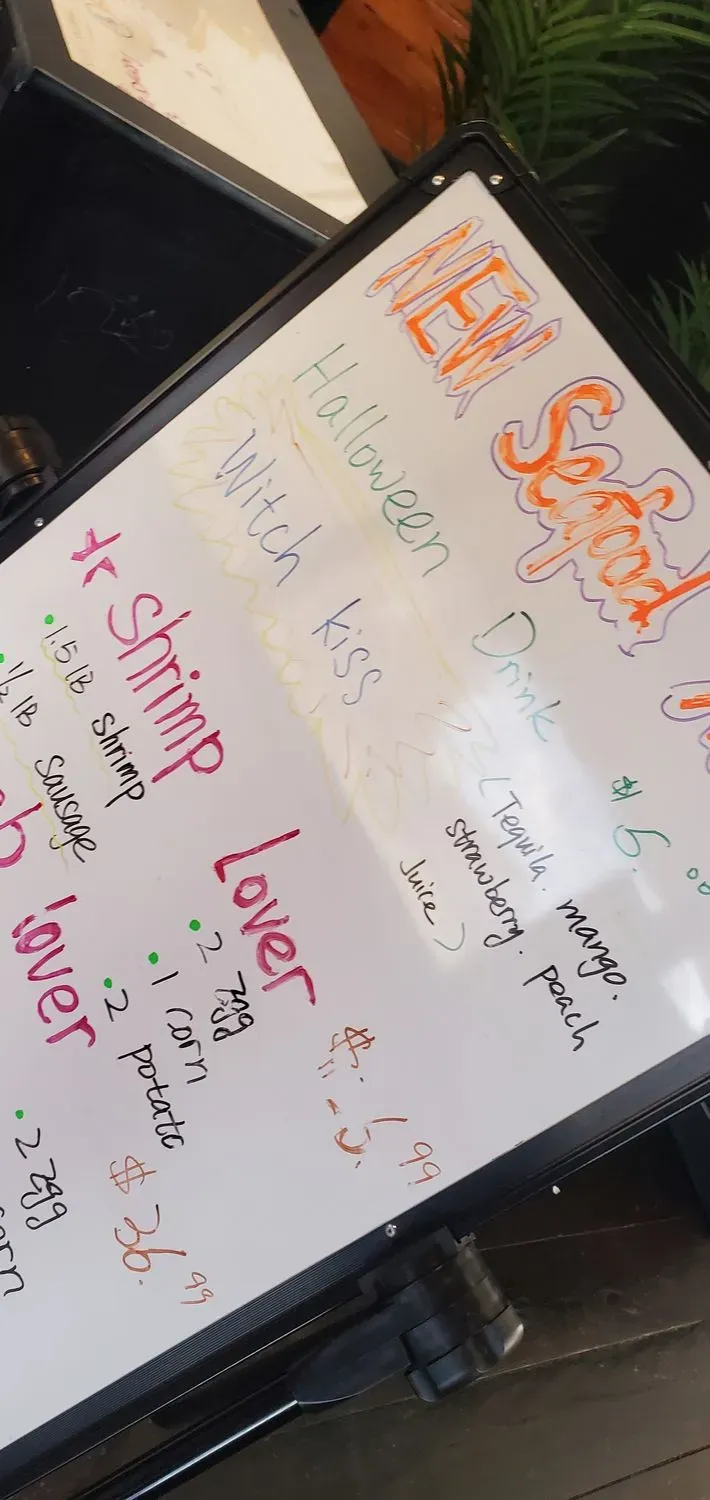 NEW Seafood
Halloween Drink $6.00
Witch kiss (Tequila. mango.
strawberry. peach
Juice)
* Shrimp Lover
• 1.5 lB shrimp • 2 egg
• 1/2 lB sausage • 1 corn
• 2 potato
lover $36.99
• 2 egg
corn